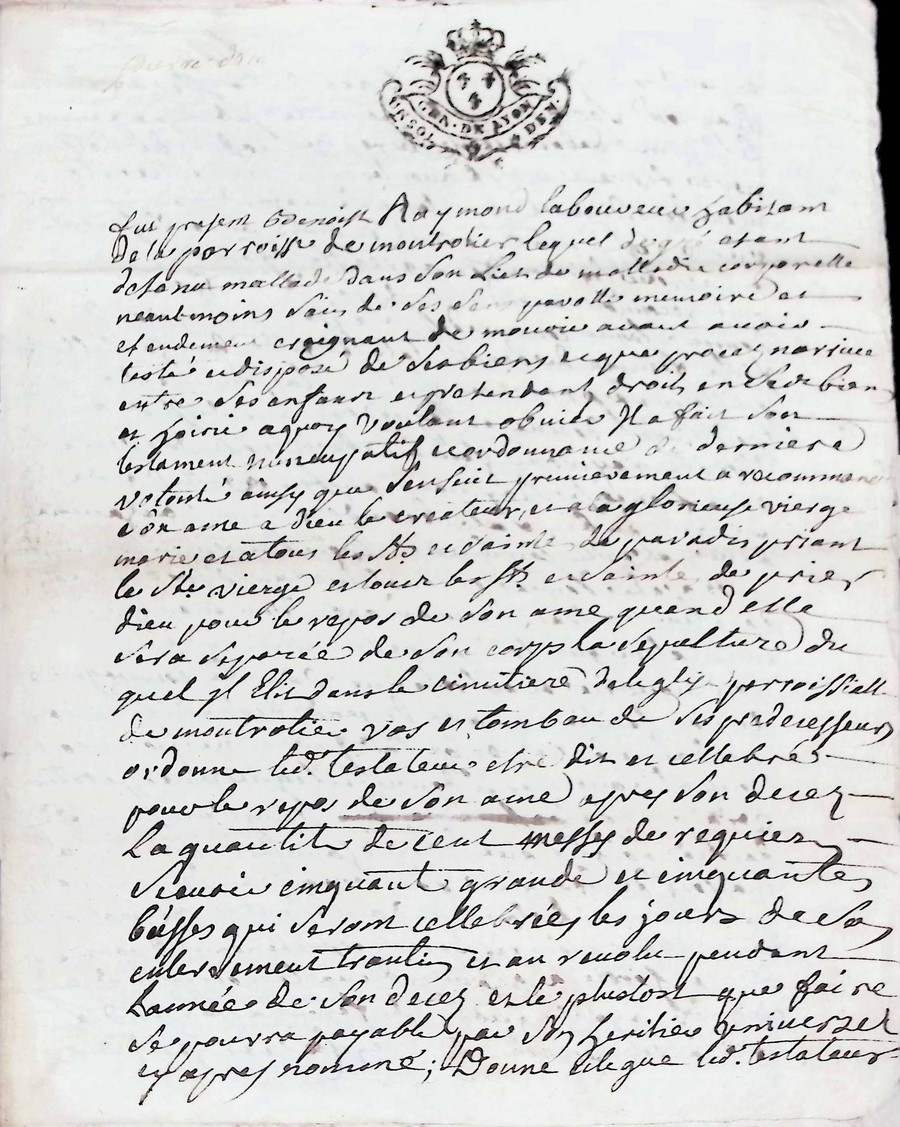 pierre
GEN. DE LYON
UN SOL DEN
fut present Benoist Raymond laboureur habitant
De la parroisse de montrotier lequel de gré etant
detenu mallade dans son Liet de malladie corporelle
neantmoins sain de ses sens parolle memoire et
entendement craignant de mourir avant avoir
testé et disposé de ses biens et que procez n'arrive
entre ses enfans et pretendant droits en ses biens
et hoirie a quoy voulant obvier Il a fait son
testament nuncupatif et ordonnance de derniere
volonté ainsy que s'ensuit premierement a recommandé
son ame a Dieu le createur, et a la glorieuse vierge
marie et a tous les Sts et sainte de paradis priant
la Ste vierge et tous les Sts et sainte de prier
dieu pour le repos de son ame quand elle
sera separée de son corps la sepulture du
quel Il Elit dans le cimitiere de leglise parroissialle
de montrotier vas et tombau de ses predecesseurs
ordonne led. testateur etre dit et cellebré
pour le repos de son ame apres son decez
La quantité de cent messes de requiem
sçavoir cinquante grande et cinquantes
basses qui seront cellebrées les jours de son
enterrement trantin et an revolu pendant
Lannée de son decez et le plustost que faire
se pourra payable par son heritier universel
cy apres nommé; Donne et legue led. testateur